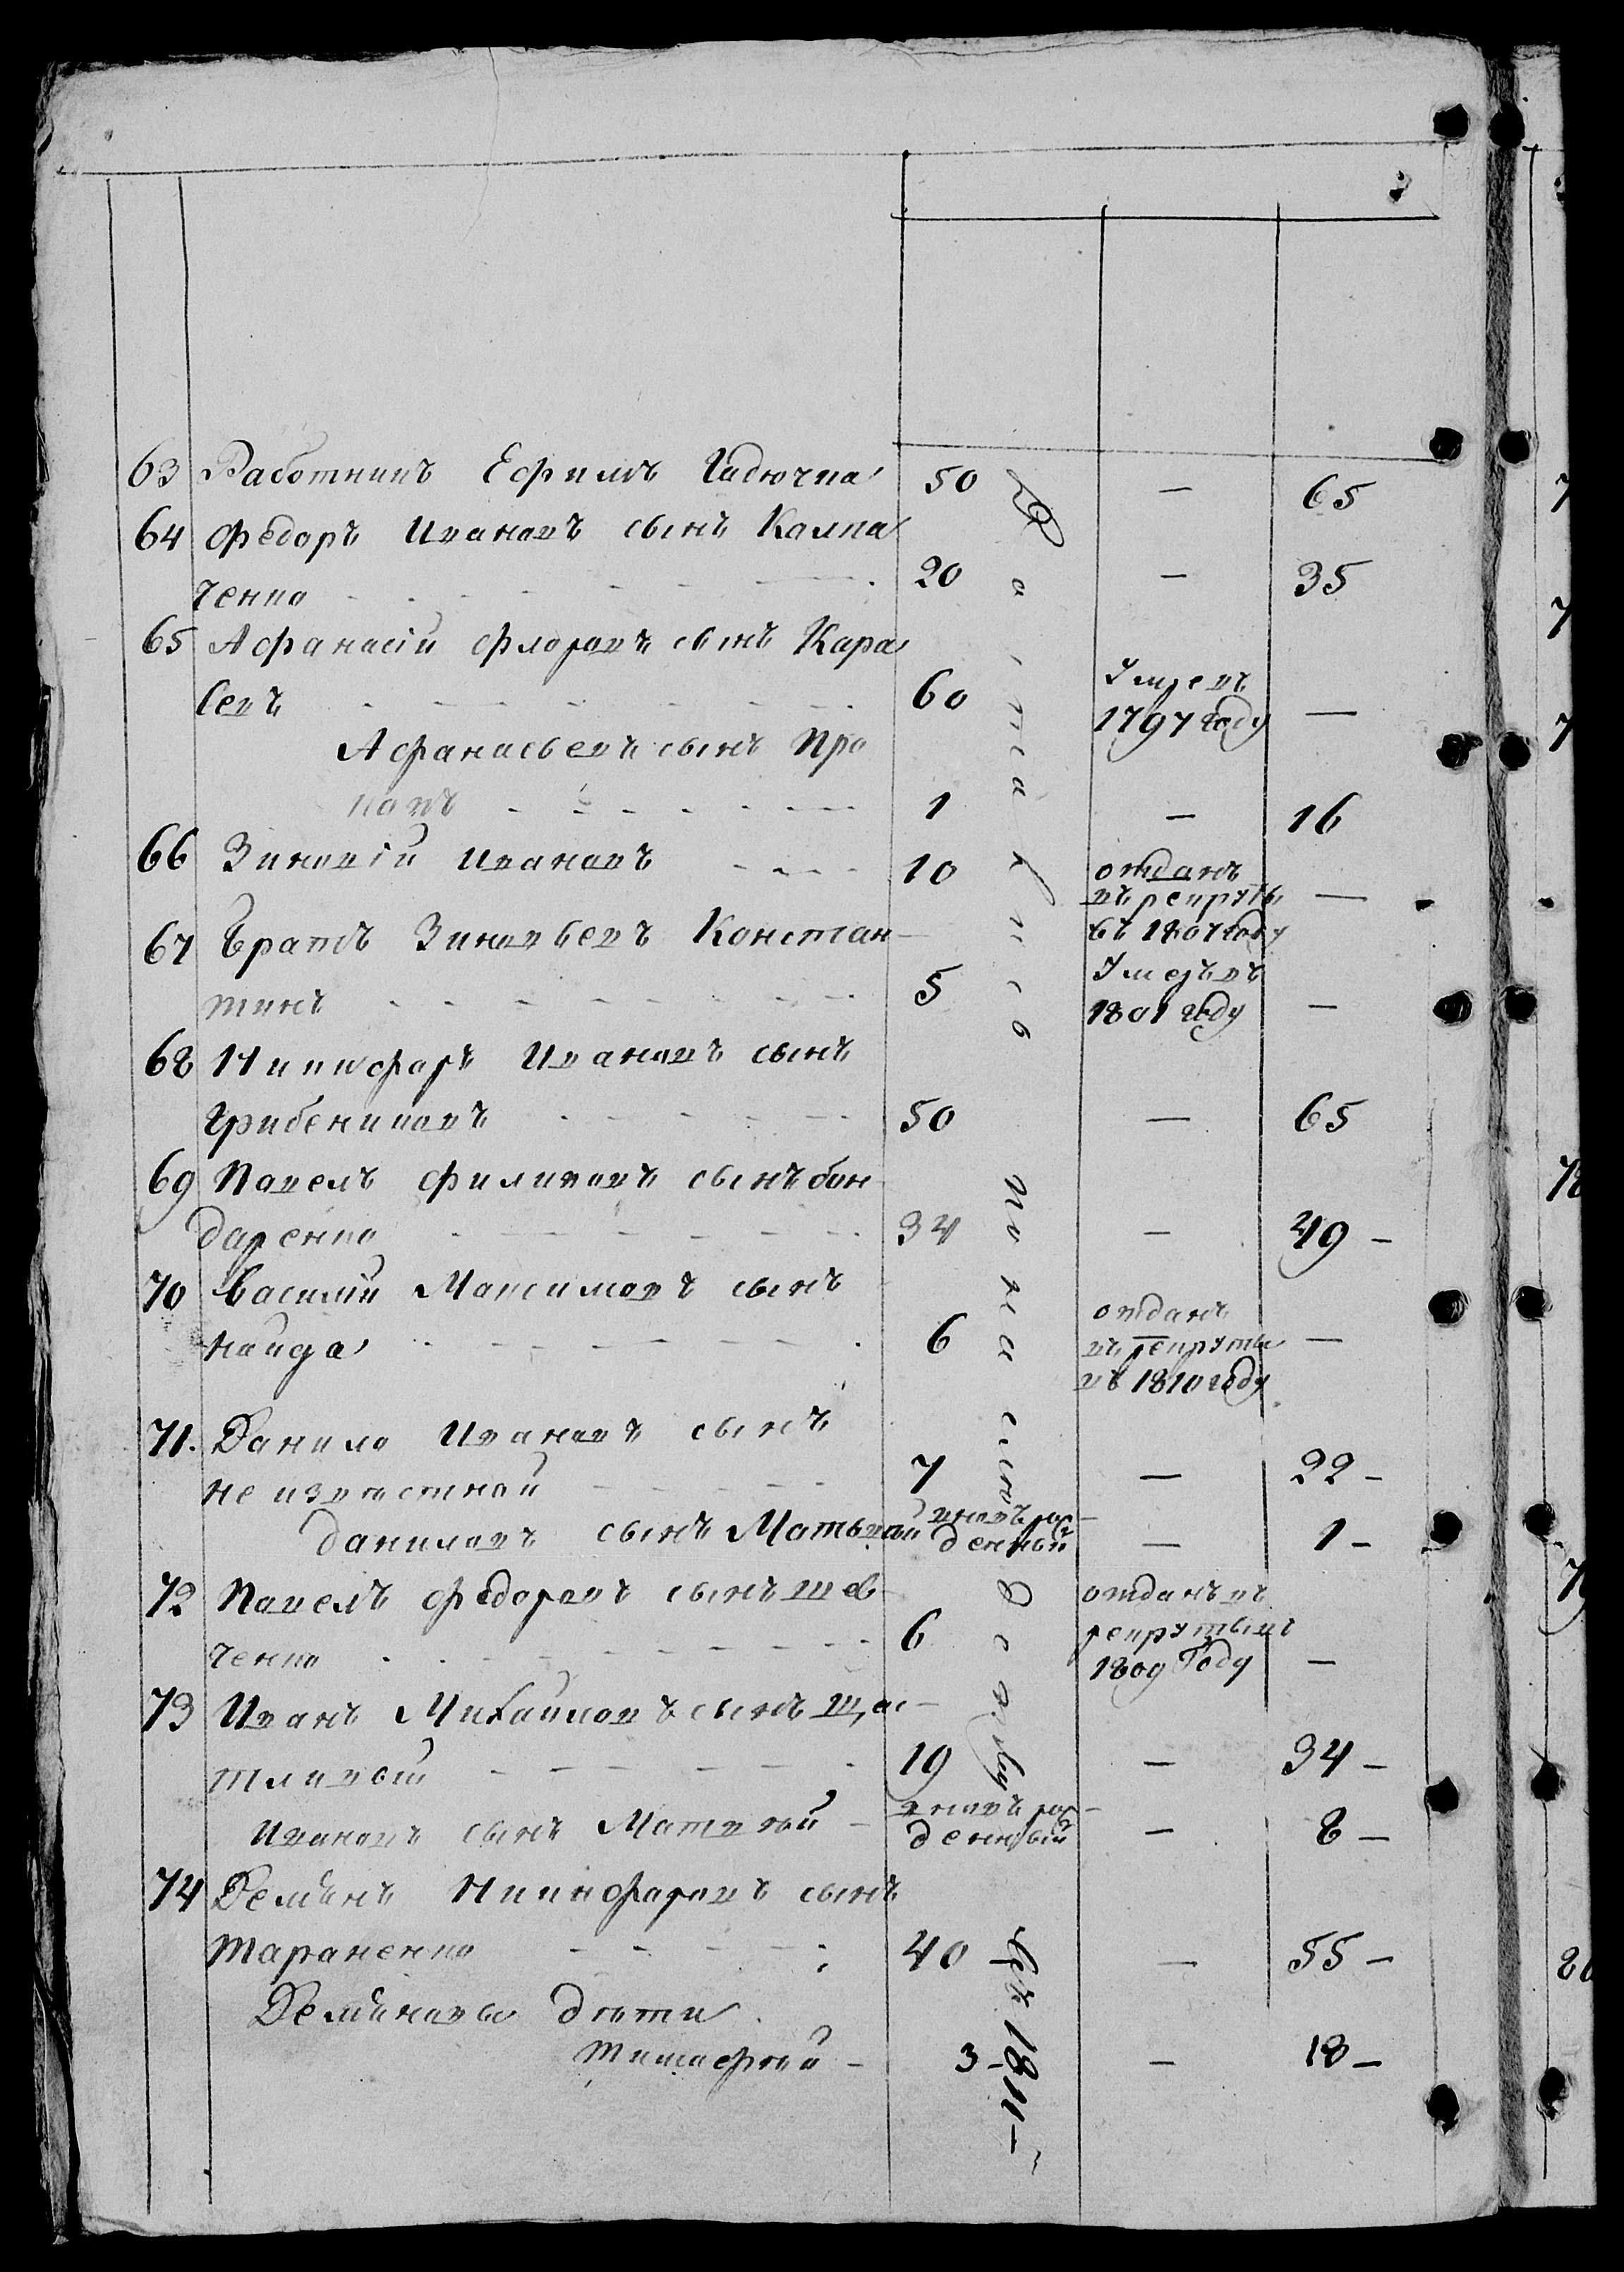 63 Работникъ Ефимъ Гадючка 50 — 65
64 Федоръ Ивановъ сынъ Калпа
ченко 20 — 35
65 Афанасій Флоровъ сынъ Кара
севъ 60 Умре въ —
1797 году
Афанасьевъ сынъ Про
копъ 1 — 16
66 Зиновій Ивановъ 10 отданъ —
въ рекруты
67 Братъ Зиновьевъ Констан- въ 1807 году
тинъ 5 Умре въ —
1801 году
68 Никифоръ Ивановъ сынъ
Грибениковъ 50 — 65
69 Павелъ Филиповъ сынъ бон
даренко 34 — 49 -
70 Василій Максимовъ сынъ отданъ
найда 6 въ рекруты —
въ 1810 году
71. Данило Ивановъ сынъ
неизвѣстной 7 — 22 -
Даниловъ сынъ Матьвей вновь рож- — 1 -
денный
72 Павелъ Федоровъ сынъ шев- отданъ въ
ченко 6 рекруты въ
1809 Году —
73 Иванъ Михайловъ сынъ щас-
тливой 19 — 34 -
Ивановъ сынъ Матвей - вновь рож- — 8 -
денный
74 Демьянъ Никифоровъ сынъ
тараненко 40 — 55 -
Демьяновы дѣти
тимофѣй - 3 - — 18 -
Осталось по наслѣ
1811